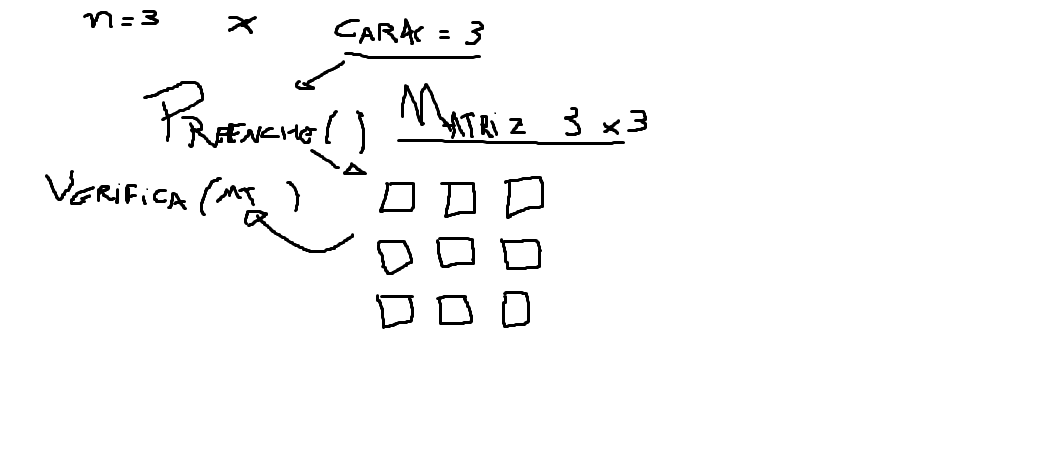 n=3 x CARAC = 3
PREENCHE( ) MATRIZ 3 x 3
VERIFICA (MT )